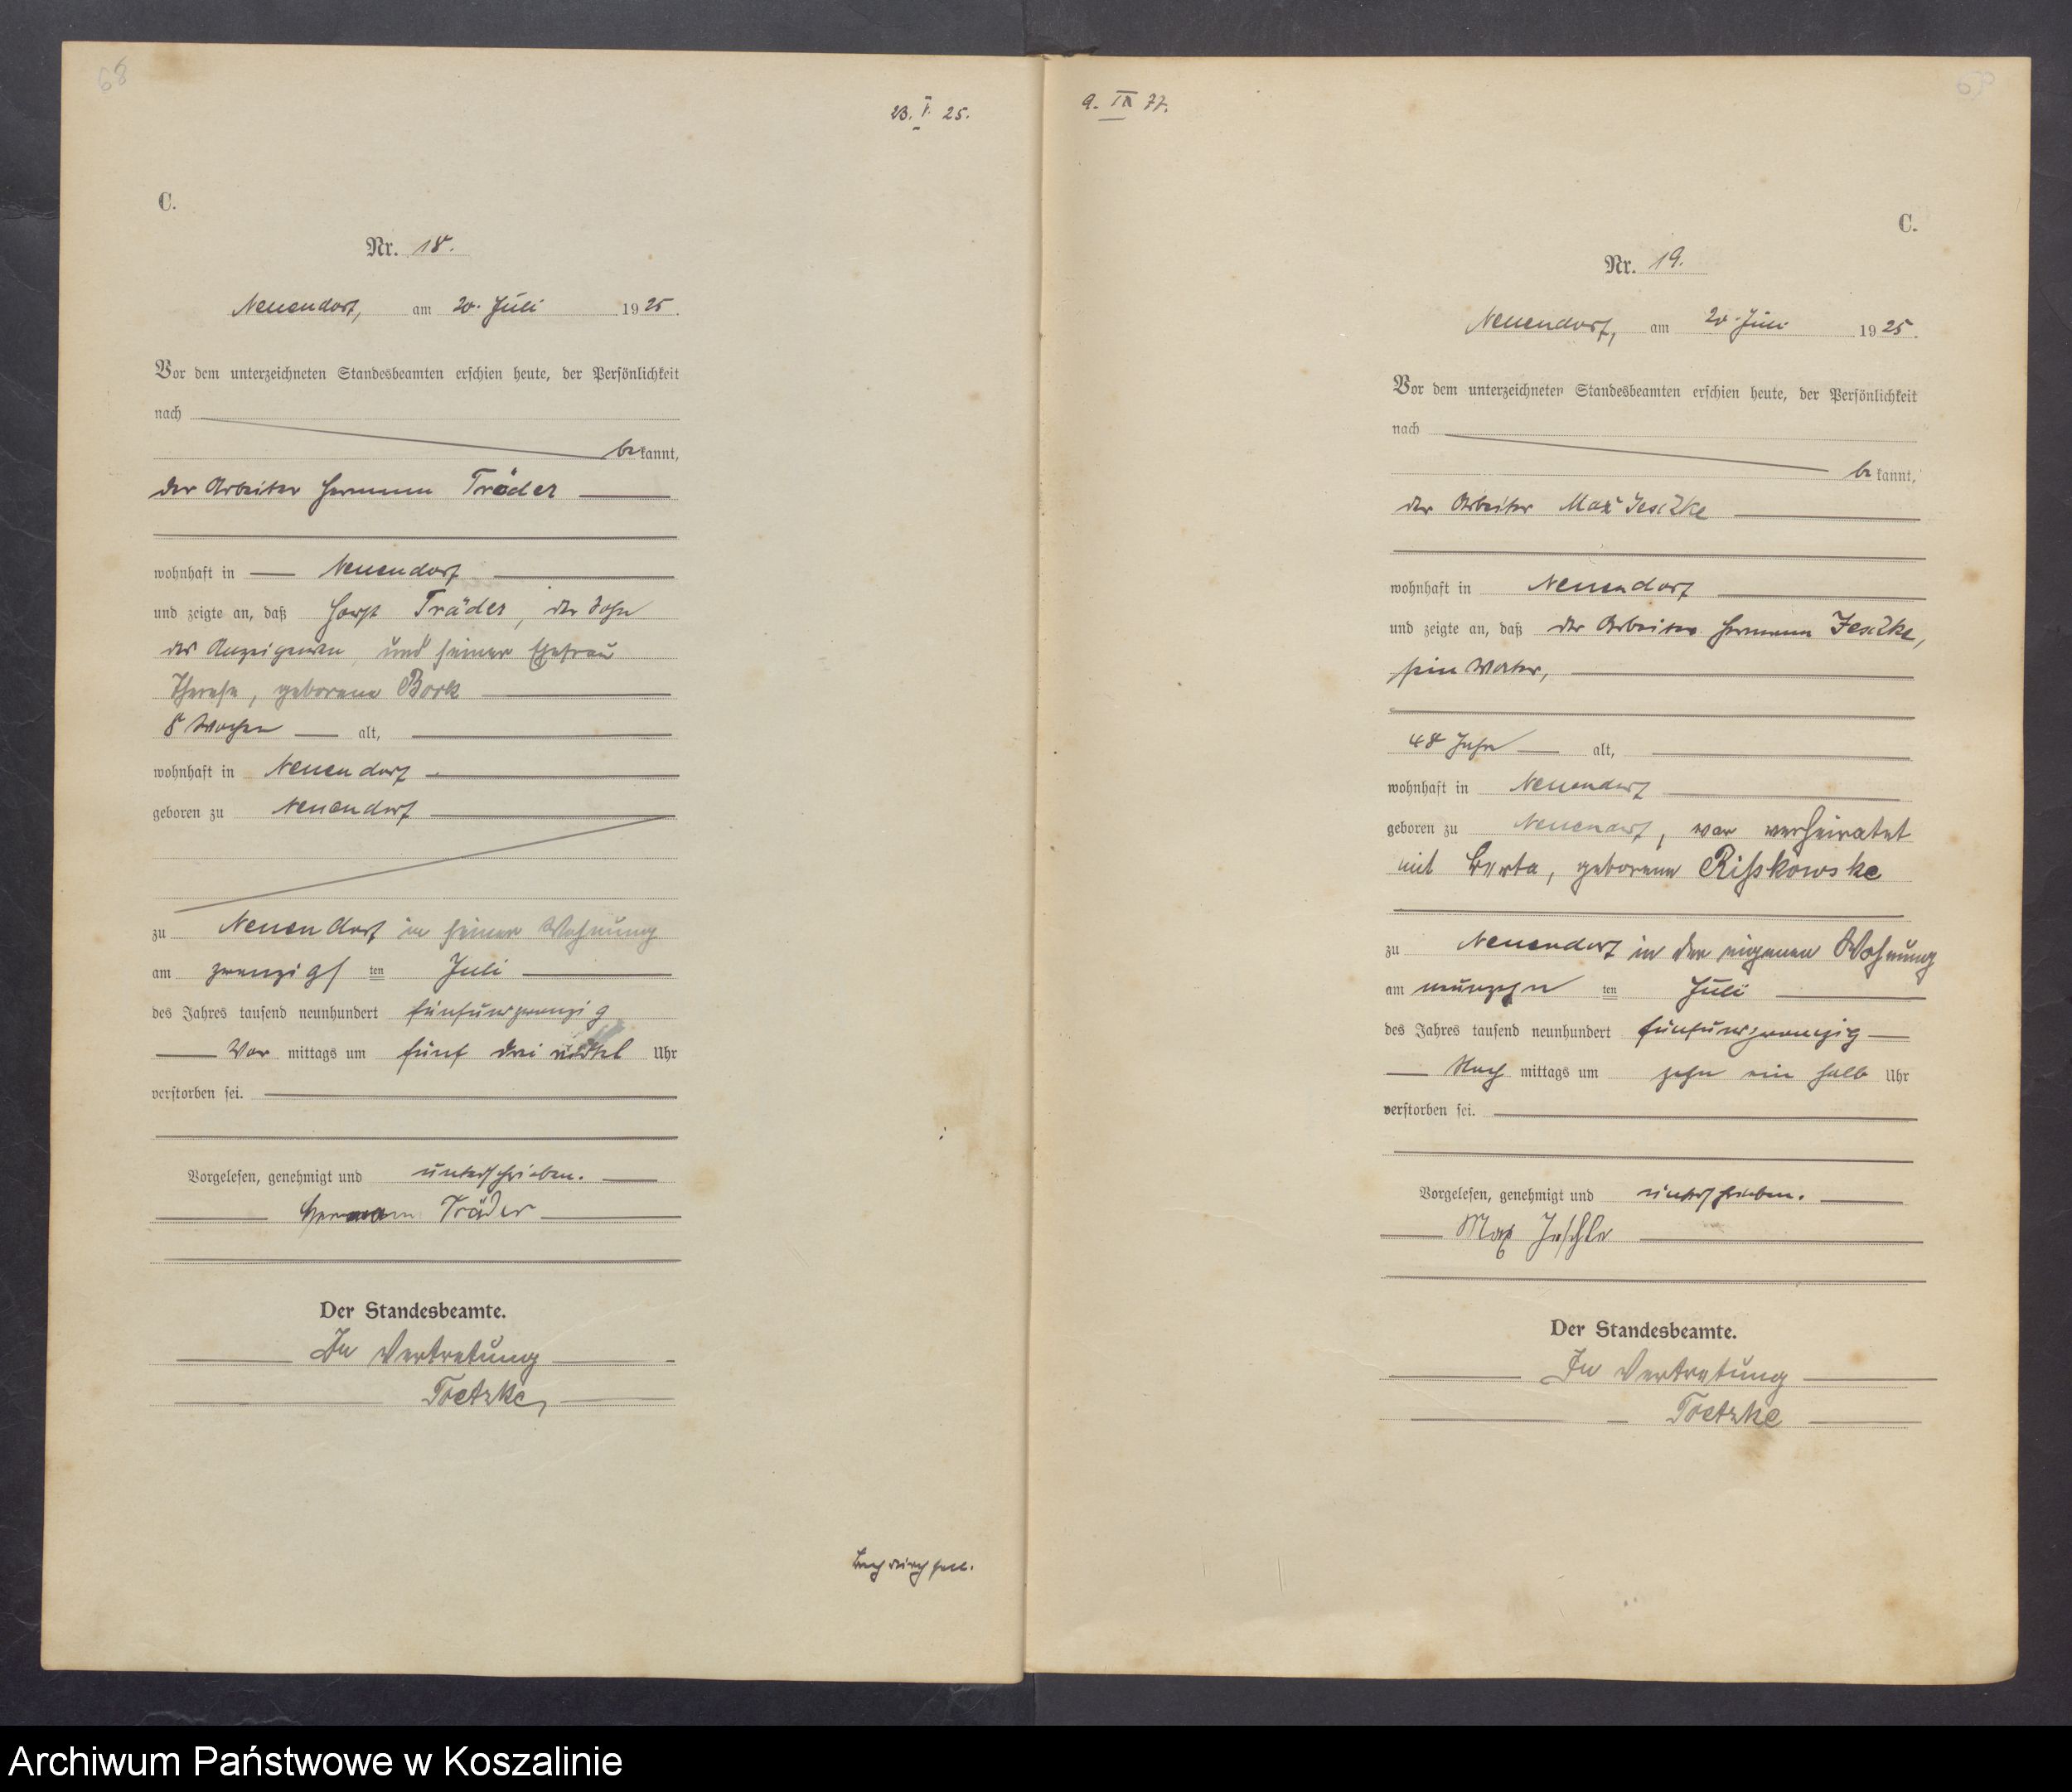 68
23. V. 25.
C.
Nr. 18.
Neuendorf, am 20. Juli 1925.
Vor dem unterzeichneten Standesbeamten erschien heute, der Persönlichkeit
nach
bekannt,
der Arbeiter Hermann Träder
wohnhaft in Neuendorf
und zeigte an, daß Horst Träder, der Sohn
des Anzeigenden und seiner Ehefrau
Therese, geborene Bork
8 Wochen alt,
wohnhaft in Neuendorf
geboren zu Neuendorf
zu Neuendorf in seiner Wohnung
am zwanzigsten Juli
des Jahres tausend neunhundert fünfundzwanzig
Vor mittags um fünf drei viertel Uhr
verstorben sei.
Vorgelesen, genehmigt und unterschrieben.
Hermann Träder
Der Standesbeamte.
In Vertretung
Toetzke
Brechdurchfall.
9. IX 77.
C.
Nr. 19.
Neuendorf, am 20. Juli 1925.
Vor dem unterzeichneten Standesbeamten erschien heute, der Persönlichkeit
nach
bekannt,
der Arbeiter Max Jeschke
wohnhaft in Neuendorf
und zeigte an, daß der Arbeiter Hermann Jeschke,
sein Vater,
48 Jahre alt,
wohnhaft in Neuendorf
geboren zu Neuendorf, war verheiratet
mit Berta, geborene Rißkowske
zu Neuendorf in der eigenen Wohnung
am neunzehnten Juli
des Jahres tausend neunhundert fünfundzwanzig
Nach mittags um zehn ein halb Uhr
verstorben sei.
Vorgelesen, genehmigt und unterschrieben.
Max Jeschke
Der Standesbeamte.
In Vertretung
Toetzke
Archiwum Państwowe w Koszalinie